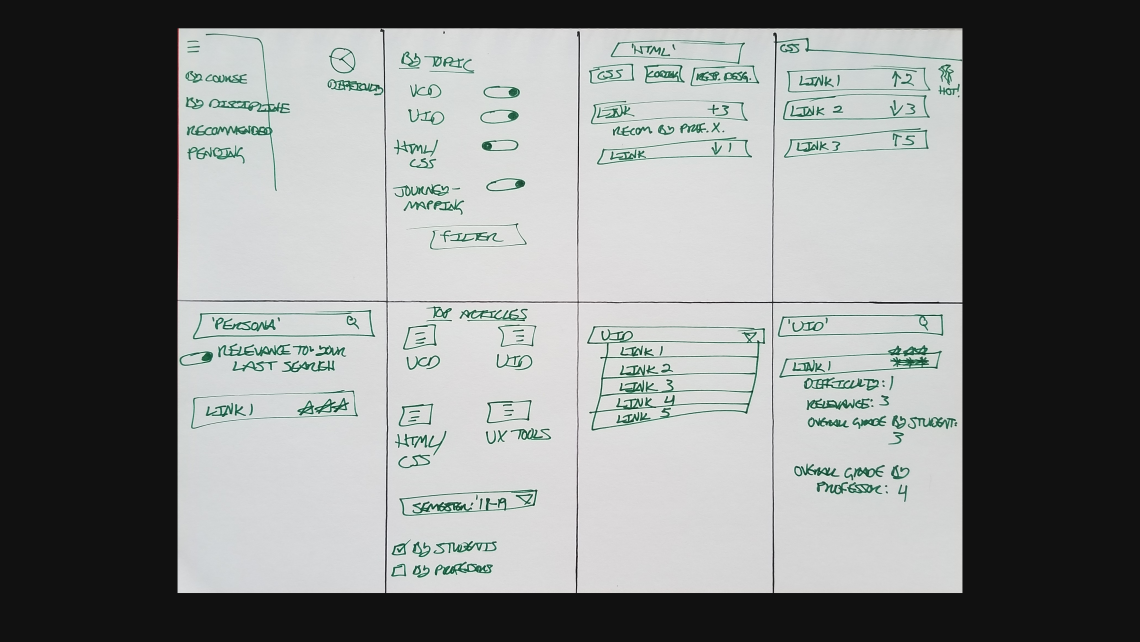 DIFFICULTY
BY COURSE
BY DISCIPLINE
RECOMMENDED
PENDING
BY TOPIC
UCD
UID
HTML/
CSS
JOURNEY-
MAPPING
FILTER
'HTML'
CSS CODING RESP. DESG.
LINK +3
RECOM BY PROF. X.
LINK ↓ 1
CSS
LINK 1 ↑2
HOT!
LINK 2 ↓3
LINK 3 ↑5
'PERSONA'
RELEVANCE TO YOUR
LAST SEARCH
LINK 1
TOP ARTICLES
UCD UID
HTML/
CSS
UX TOOLS
SEMESTER: '18-19
BY STUDENTS
BY PROFESSORS
UID
LINK 1
LINK 2
LINK 3
LINK 4
LINK 5
'UID'
LINK 1
DIFFICULTY: 1
RELEVANCE: 3
OVERALL GRADE BY STUDENT:
3
OVERALL GRADE BY
PROFESSOR: 4